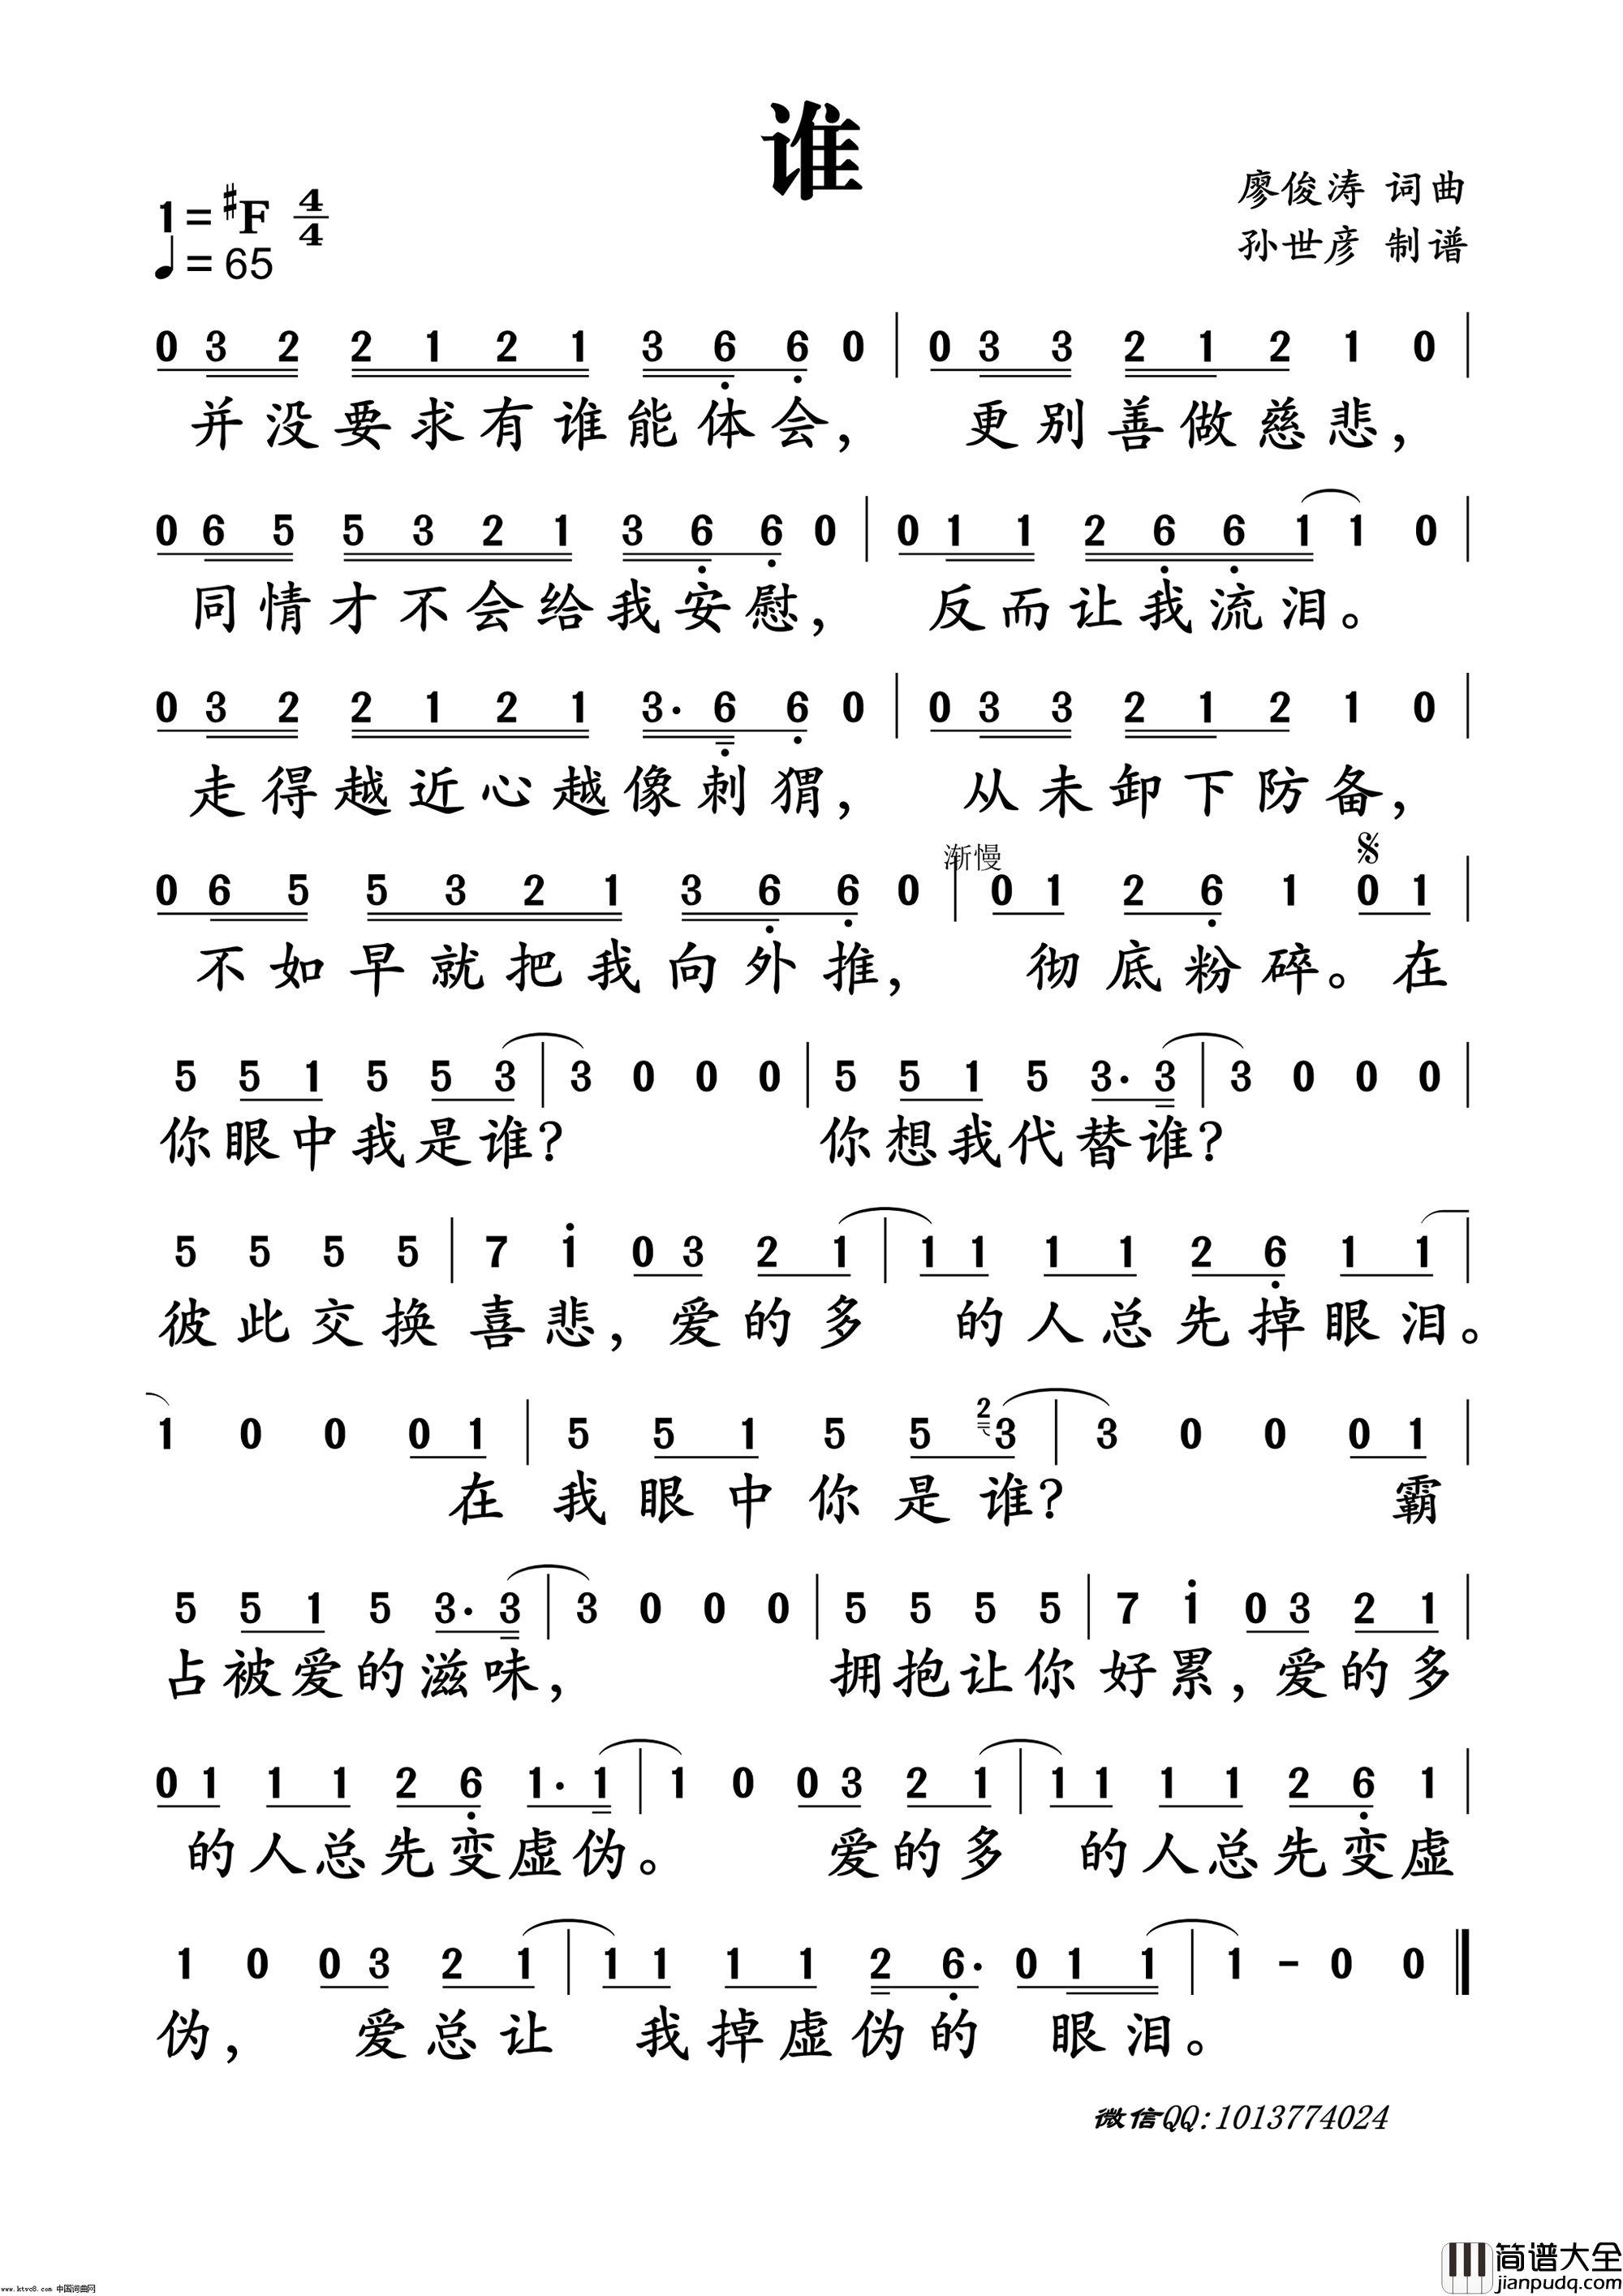 谁
廖俊涛 词曲
1=♯F 4/4
孙世彦 制谱
♩=65
0 3 2 2 1 2 1 3 6̣ 6̣ 0 | 0 3 3 2 1 2 1 0 |
并没要求有谁能体会， 更别善做慈悲，
0 6 5 5 3 2 1 3 6̣ 6̣ 0 | 0 1 1 2 6̣ 6̣ 1 1 0 |
同情才不会给我安慰， 反而让我流泪。
0 3 2 2 1 2 1 3· 6̣ 6̣ 0 | 0 3 3 2 1 2 1 0 |
走得越近心越像刺猬， 从未卸下防备，
渐慢 𝄋
0 6 5 5 3 2 1 3 6̣ 6̣ 0 | 0 1 2 6̣ 1 0 1 |
不如早就把我向外推， 彻底粉碎。在
5 5 1 5 5 3 | 3 0 0 0 | 5 5 1 5 3· 3 | 3 0 0 0 |
你眼中我是谁? 你想我代替谁?
5 5 5 5 | 7 1̇ 0 3 2 1 | 1 1 1 1 2 6̣ 1 1 |
彼此交换喜悲，爱的多 的人总先掉眼泪。
1 0 0 0 1 | 5 5 1 5 5 2 3 | 3 0 0 0 1 |
在我眼中你是谁? 霸
5 5 1 5 3· 3 | 3 0 0 0 | 5 5 5 5 | 7 1̇ 0 3 2 1 |
占被爱的滋味， 拥抱让你好累，爱的多
0 1 1 1 2 6̣ 1· 1 | 1 0 0 3 2 1 | 1 1 1 1 2 6̣ 1 |
的人总先变虚伪。 爱的多 的人总先变虚
1 0 0 3 2 1 | 1 1 1 1 2 6̣· 0 1 1 | 1 - 0 0 ‖
伪， 爱总让 我掉虚伪的 眼泪。
微信QQ:1013774024
简谱大全
www.ktvc8.com 中国词曲网
jianpudq.com